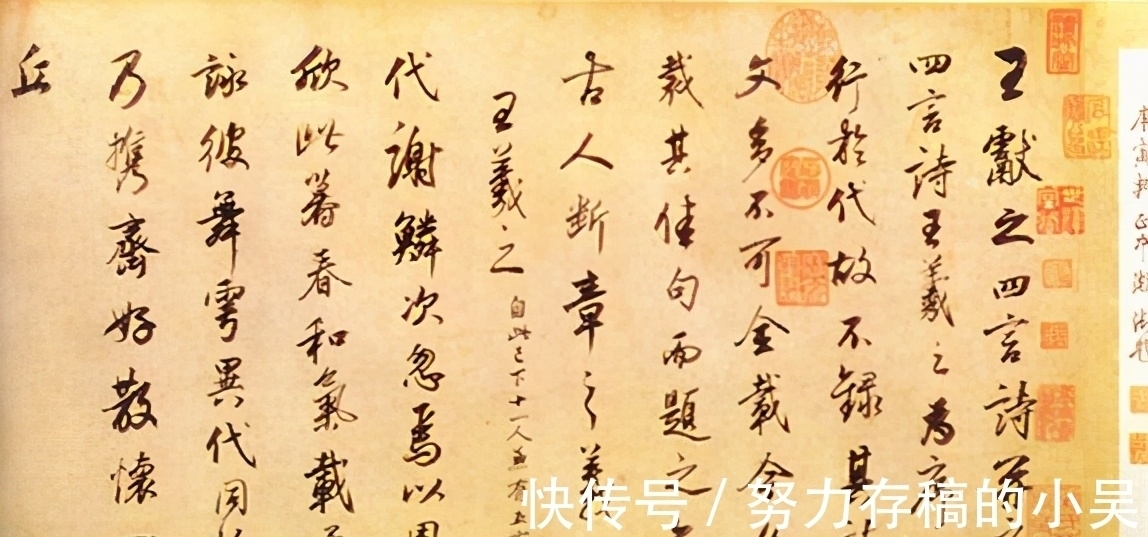 王獻之四言詩并
四言詩王羲之為序
行於代故不錄其詩
文多不可全載今
裁其佳句而題之
古人斷章之義
王羲之 自此已下十一人並有五
代謝鱗次忽焉以周
欣此暮春和氣載
詠彼舞雩異代同
乃攜齊好散懷
丘
快传号 / 努力存稿的小吴